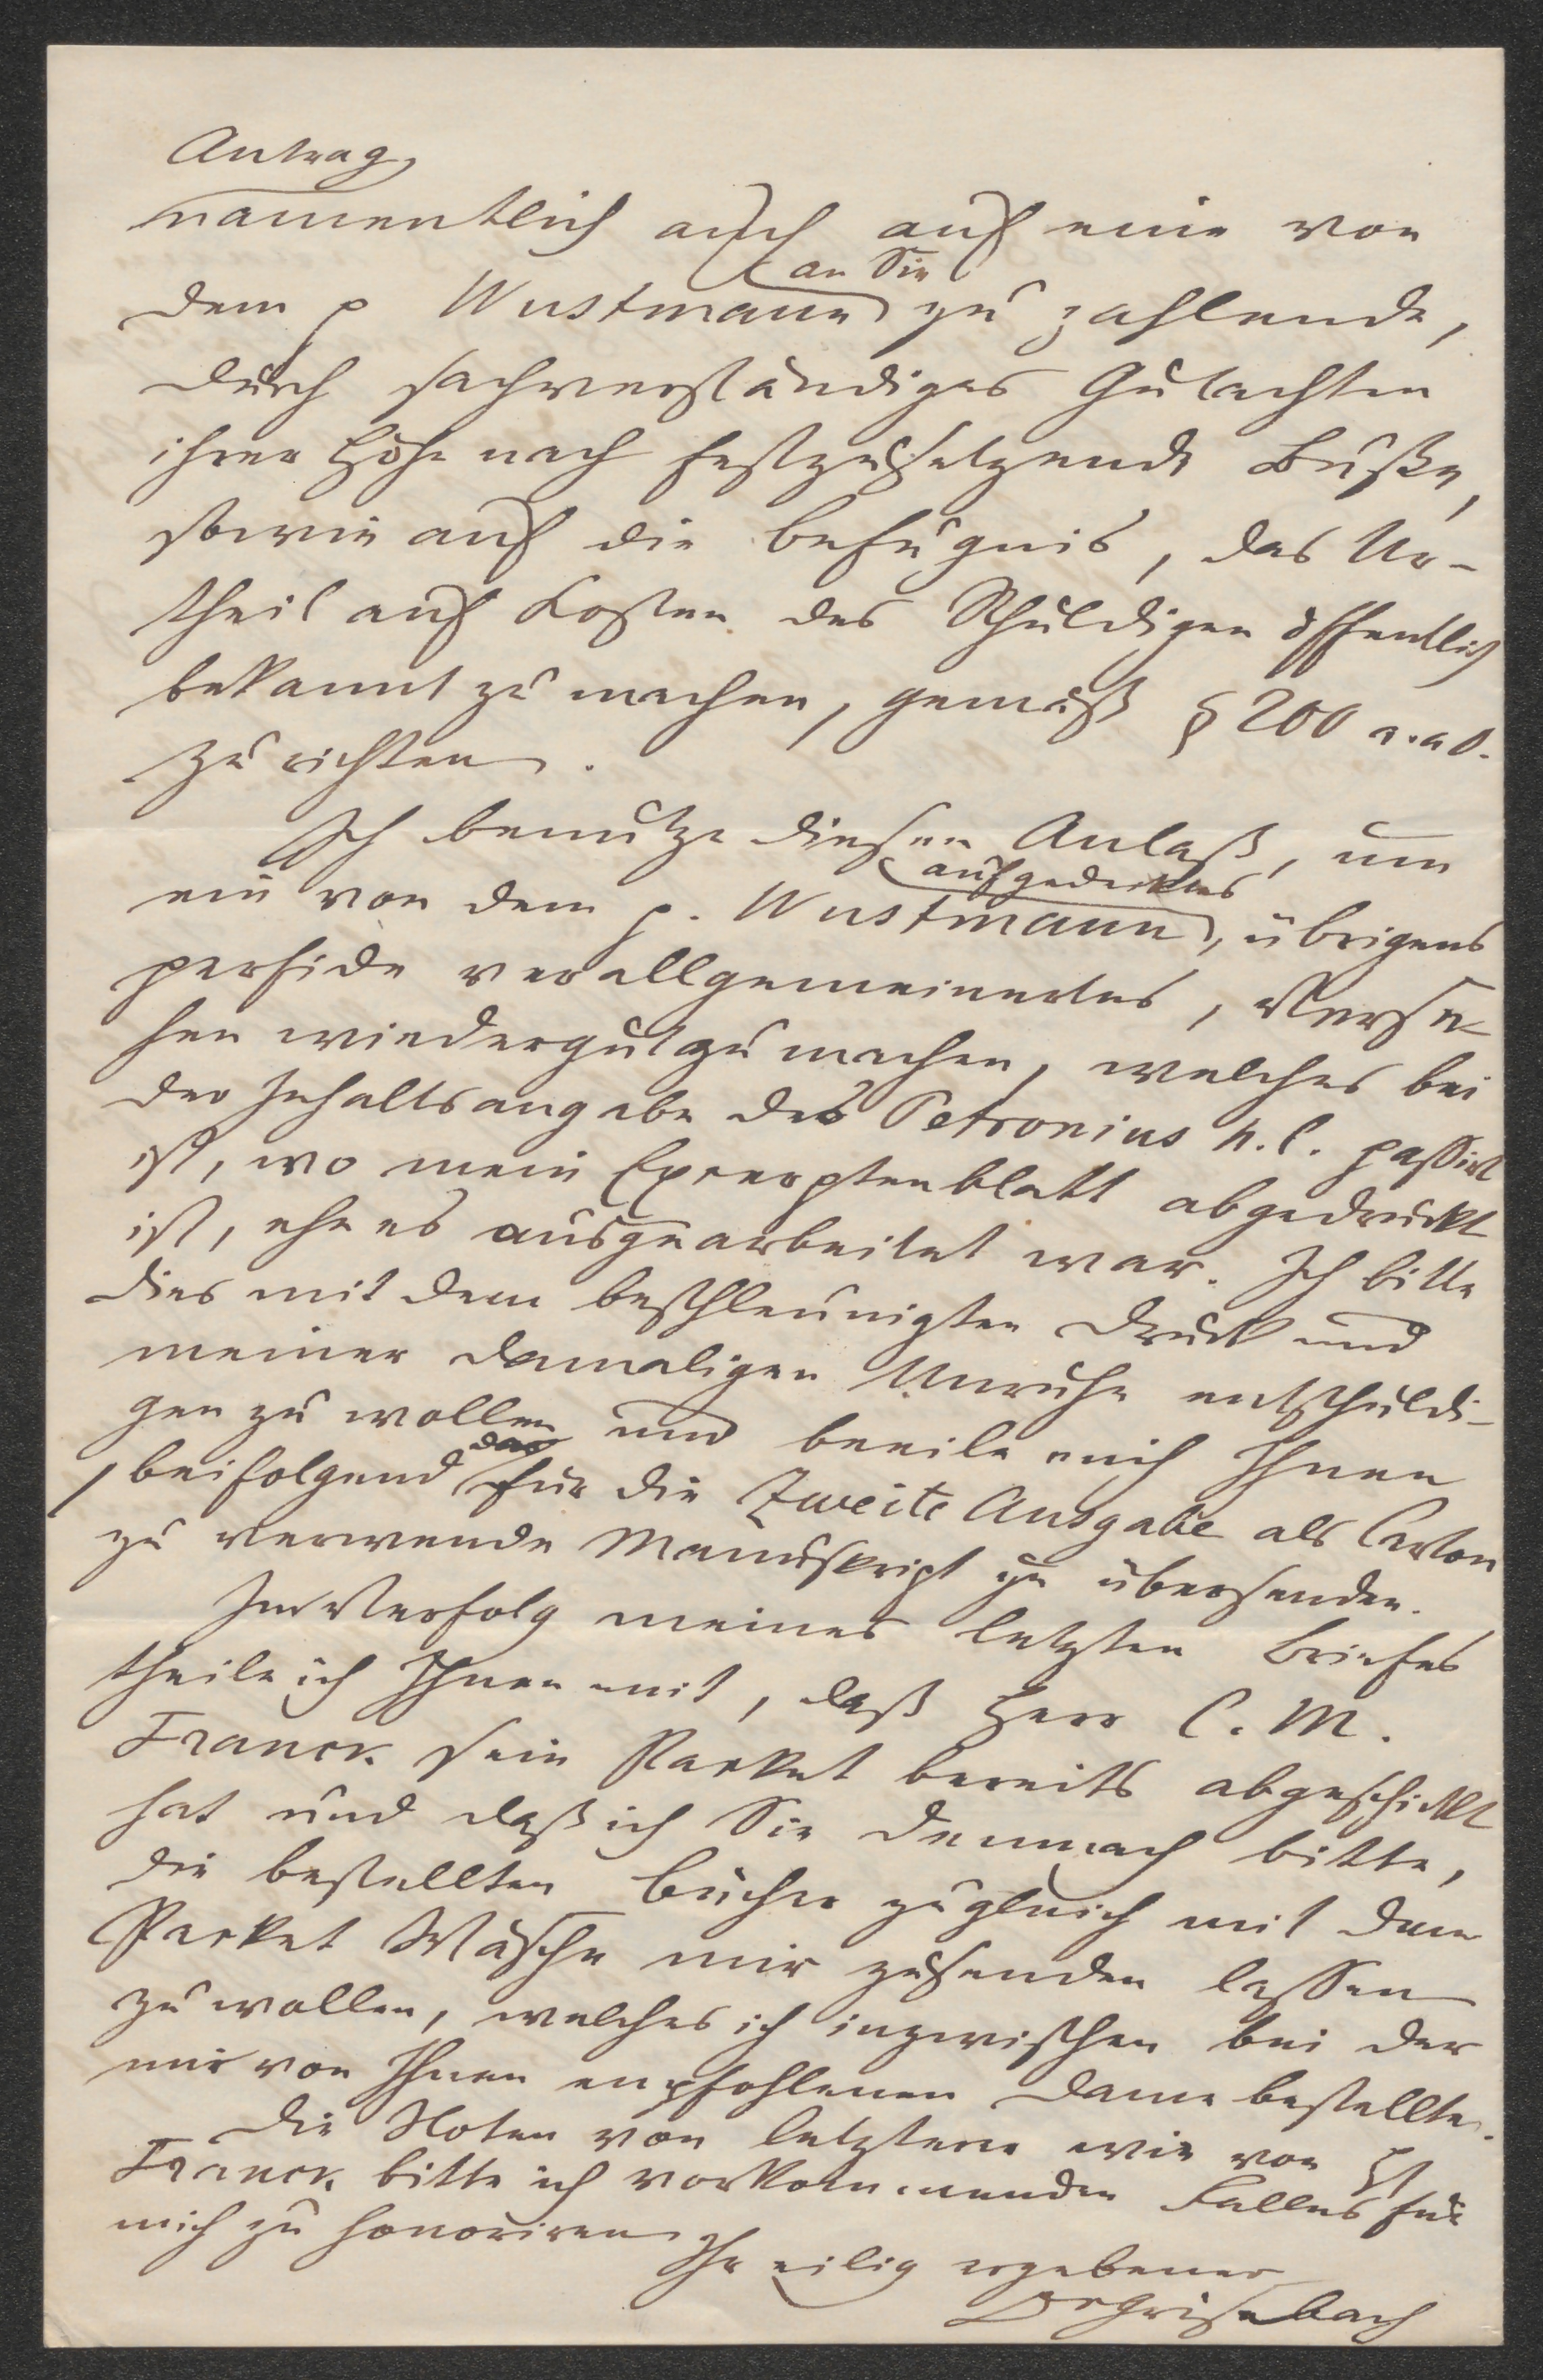 Antrag
namentlich auch auf eine von
dem p Wustmann an Sie zu zahlende,
durch sachverständiges Gutachten
ihrer Höhe nach festzusetzende Buße,
sowie auf die Befugnis, das Ur-
theil auf Kosten des Schuldigen öffentlich
bekannt zu machen, gemäß § 200 a.a.O.
zu richten.
Ich benutze diesen Anlaß, um
ein von dem p. Wustmann aufgedecktes, übrigens
perfide verallgemeinertes, Verse-
hen wiedergutzumachen, welches bei
der Inhaltsangabe des Petronius h.l. passirt
ist, wo mein Excerptenblatt abgedruckt
ist, ehe es ausgearbeitet war. Ich bitte
dies mit dem beschleunigten Druck und
meiner damaligen Unruhe entschuldi-
gen zu wollen und beeile mich Ihnen
, beifolgend das für die Zweite Ausgabe als Carton
zu verwende Manuskript zu übersenden.
Im Verfolg meines letzten Briefes
theile ich Ihnen mit, daß Herr C. M.
Franck sein Packet bereits abgeschickt
hat und daß ich Sie demnach bitte,
die bestellten Bücher zugleich mit dem
Packet Wäsche mir zusenden lassen
zu wollen, welches ich inzwischen bei der
mir von Ihnen empfohlenen Dame bestellte.
Die Noten von letzterer wie von H
Franck bitte ich vorkommenden Falles für
mich zu honoriren
Ihr eilig ergebener
Grisebach